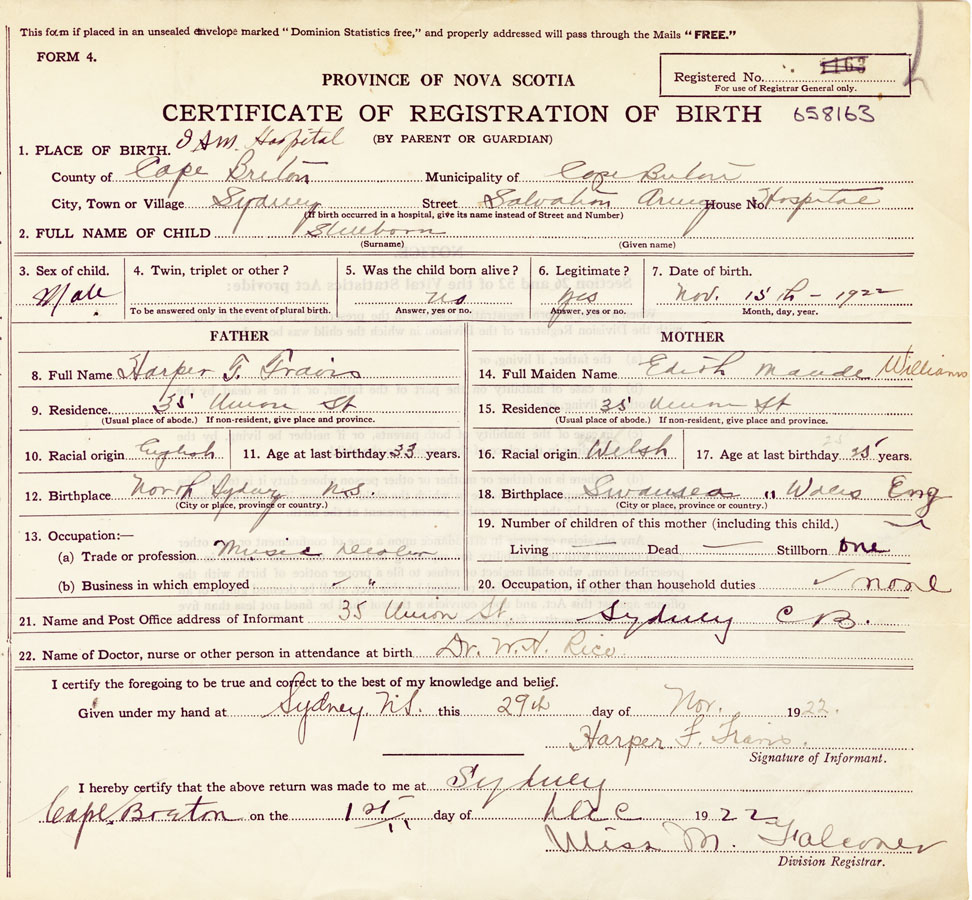 This form if placed in an unsealed envelope marked "Dominion Statistics free," and properly addressed will pass through the Mails "FREE."
FORM 4.
Registered No. 1163
For use of Registrar General only.
PROVINCE OF NOVA SCOTIA
CERTIFICATE OF REGISTRATION OF BIRTH 658163
(BY PARENT OR GUARDIAN)
1. PLACE OF BIRTH. Hospital
County of Cape Breton Municipality of Cape Breton
City, Town or Village Sydney Street Salvation Army House No. Hospital
(If birth occurred in a hospital, give its name instead of Street and Number)
2. FULL NAME OF CHILD Stillborn
(Surname) (Given name)
3. Sex of child. 4. Twin, triplet or other? 5. Was the child born alive? 6. Legitimate? 7. Date of birth.
Male no yes Nov. 15th - 1922
To be answered only in the event of plural birth. Answer, yes or no. Answer, yes or no. Month, day, year.
FATHER MOTHER
8. Full Name Harper F. Travis 14. Full Maiden Name Edith Maude Williams
9. Residence. 35 Union St 15. Residence 35 Union St
(Usual place of abode.) If non-resident, give place and province. (Usual place of abode.) If non-resident, give place and province.
10. Racial origin English 11. Age at last birthday 33 years. 16. Racial origin Welsh 17. Age at last birthday 25 years.
12. Birthplace North Sydney N.S. 18. Birthplace Swansea " Wales Eng
(City or place, province or country.) (City or place, province or country.)
19. Number of children of this mother (including this child.)
13. Occupation:—
(a) Trade or profession Music Dealer Living — Dead — Stillborn one
(b) Business in which employed " 20. Occupation, if other than household duties none
21. Name and Post Office address of Informant 35 Union St. Sydney C B.
22. Name of Doctor, nurse or other person in attendance at birth Dr. W. A. Rice
I certify the foregoing to be true and correct to the best of my knowledge and belief.
Given under my hand at Sydney, N.S. this 29th day of Nov. 1922.
Harper F. Travis.
Signature of Informant.
I hereby certify that the above return was made to me at Sydney
Cape Breton on the 1st day of Dec 1922
Miss M. Falconer
Division Registrar.